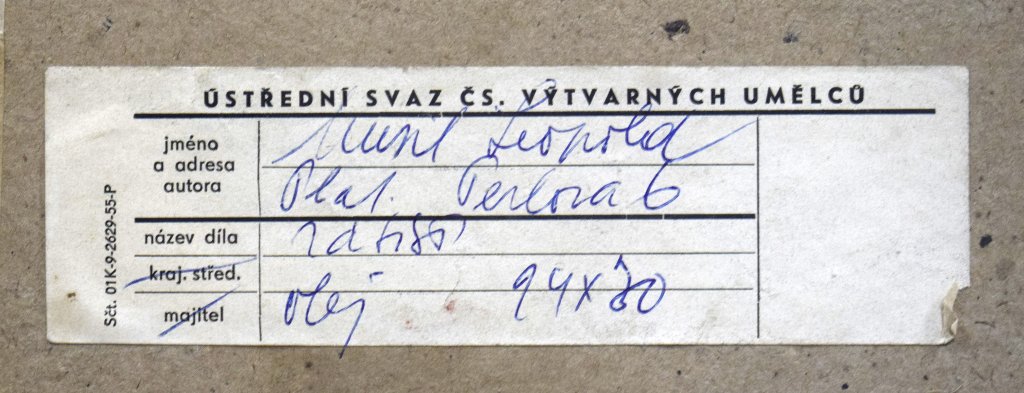 ÚSTŘEDNÍ SVAZ ČS. VÝTVARNÝCH UMĚLCŮ
jméno a adresa autora
Musil Leopold
Perlová 6
název díla
zátiší
kraj. střed.
majitel
olej 94x80
Sčt. 01K-9-2629-55-P